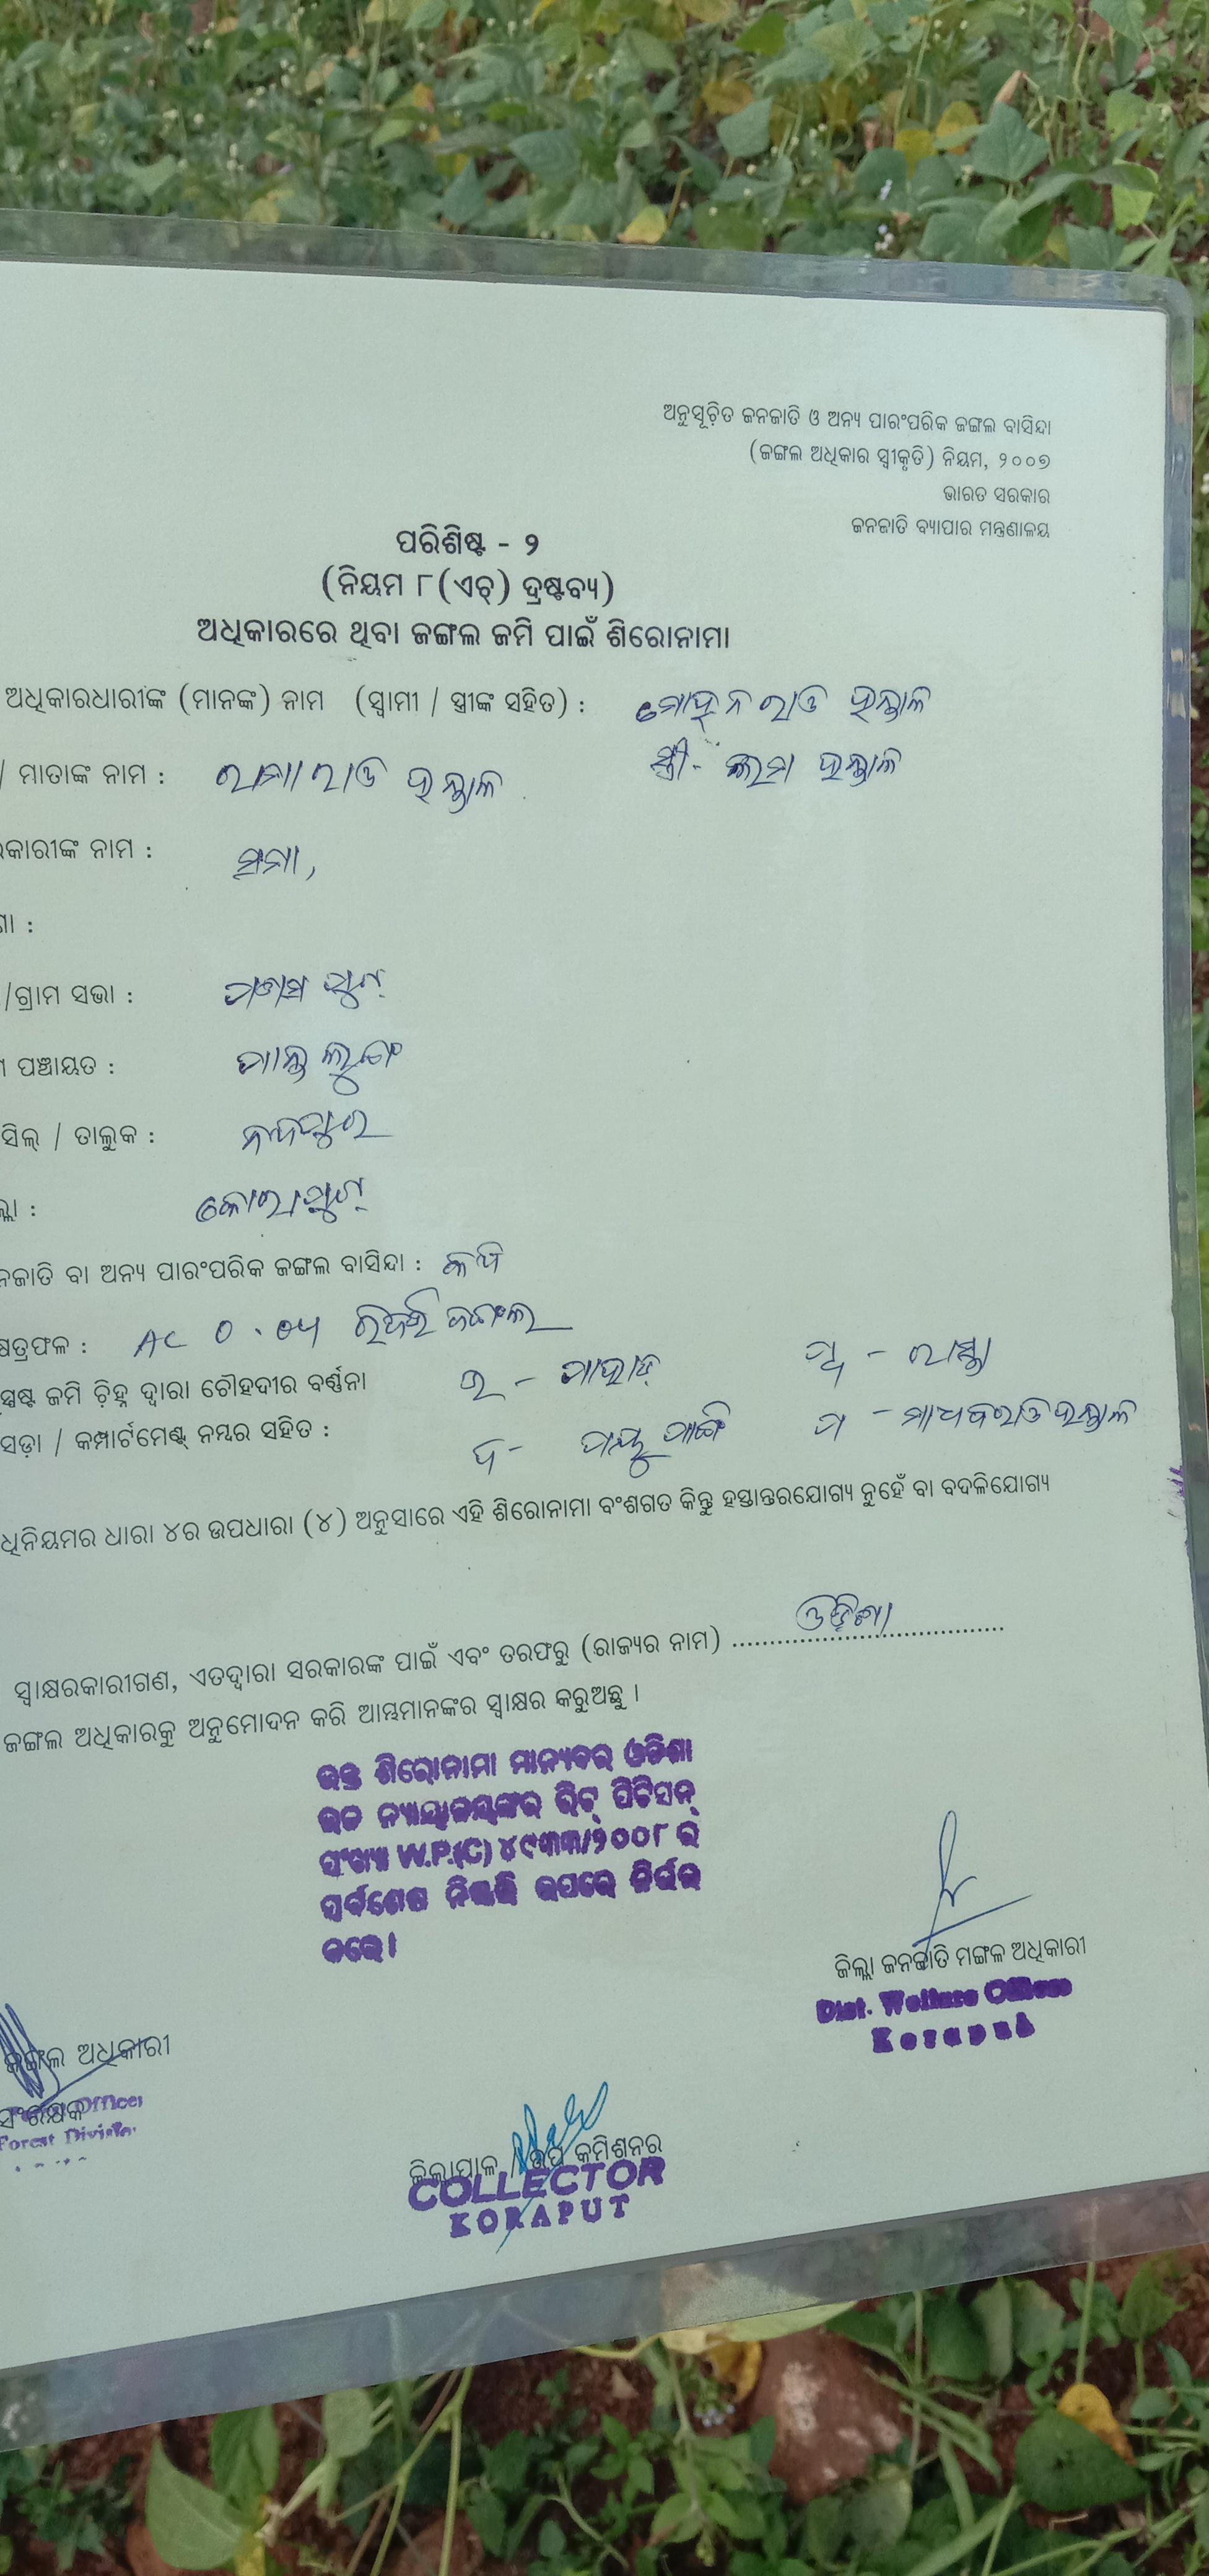 ଅନୁସୂଚିତ ଜନଜାତି ଓ ଅନ୍ୟ ପାରଂପରିକ ଜଙ୍ଗଲ ବାସିନ୍ଦା
(ଜଙ୍ଗଲ ଅଧିକାର ସ୍ୱୀକୃତି) ନିୟମ, ୨୦୦୭
ଭାରତ ସରକାର
ଜନଜାତି ବ୍ୟାପାର ମନ୍ତ୍ରଣାଳୟ
ପରିଶିଷ୍ଟ - ୨
(ନିୟମ ୮(ଏଚ୍) ଦ୍ରଷ୍ଟବ୍ୟ)
ଅଧିକାରରେ ଥିବା ଜଙ୍ଗଲ ଜମି ପାଇଁ ଶିରୋନାମା
ଅଧିକାରଧାରୀଙ୍କ (ମାନଙ୍କ) ନାମ (ସ୍ୱାମୀ / ସ୍ତ୍ରୀଙ୍କ ସହିତ) : ମୋହନ ରାଓ ହନ୍ତାଳ
/ ମାତାଙ୍କ ନାମ : ରାମା ରାଓ ହନ୍ତାଳ ସ୍ତ୍ରୀ- ହନ୍ତାଳ
କାରୀଙ୍କ ନାମ :
ଣା :
/ଗ୍ରାମ ସଭା :
ପଞ୍ଚାୟତ :
ସିଲ୍ / ତାଲୁକ :
ଲ୍ଲା : କୋରାପୁଟ୍
ନଜାତି ବା ଅନ୍ୟ ପାରଂପରିକ ଜଙ୍ଗଲ ବାସିନ୍ଦା :
ଷତ୍ରଫଳ : AC
ସ୍ପଷ୍ଟ ଜମି ଚିହ୍ନ ଦ୍ୱାରା ଚୌହଦୀର ବର୍ଣ୍ଣନା ଉ - ପାହାଡ଼ ପୂ - ରାସ୍ତା
ସଡ଼ା / କମ୍ପାର୍ଟମେଣ୍ଟ୍ ନମ୍ବର ସହିତ : ଦ - ପ - ମାଧବରାଓ ହନ୍ତାଳ
ଧିନିୟମର ଧାରା ୪ର ଉପଧାରା (୪) ଅନୁସାରେ ଏହି ଶିରୋନାମା ବଂଶଗତ କିନ୍ତୁ ହସ୍ତାନ୍ତରଯୋଗ୍ୟ ନୁହେଁ ବା ବଦଳିଯୋଗ୍ୟ
ସ୍ୱାକ୍ଷରକାରୀଗଣ, ଏତଦ୍ୱାରା ସରକାରଙ୍କ ପାଇଁ ଏବଂ ତରଫରୁ (ରାଜ୍ୟର ନାମ) ଓଡ଼ିଶା
ଜଙ୍ଗଲ ଅଧିକାରକୁ ଅନୁମୋଦନ କରି ଆମ୍ଭମାନଙ୍କର ସ୍ୱାକ୍ଷର କରୁଅଛୁ ।
ଉକ୍ତ ଶିରୋନାମା ମାନ୍ୟବର ଓଡିଶା
ଉଚ୍ଚ ନ୍ୟାୟାଳୟଙ୍କର ରିଟ୍ ପିଟିସନ୍
ସଂଖ୍ୟା W.P.(C) ୪୯୩୩/୨୦୦୮ ର
ସର୍ବଶେଷ ନିଷ୍ପତ୍ତି ଉପରେ ନିର୍ଭର
କରେ।
ଜିଲ୍ଲା ଜନଜାତି ମଙ୍ଗଳ ଅଧିକାରୀ
Dist. Welfare Officer
Koraput
ଜଙ୍ଗଲ ଅଧିକାରୀ
ସଂରକ୍ଷକ
Officer
Forest Division
ଜିଲ୍ଲାପାଳ / ଉପ କମିଶନର
COLLECTOR
KORAPUT